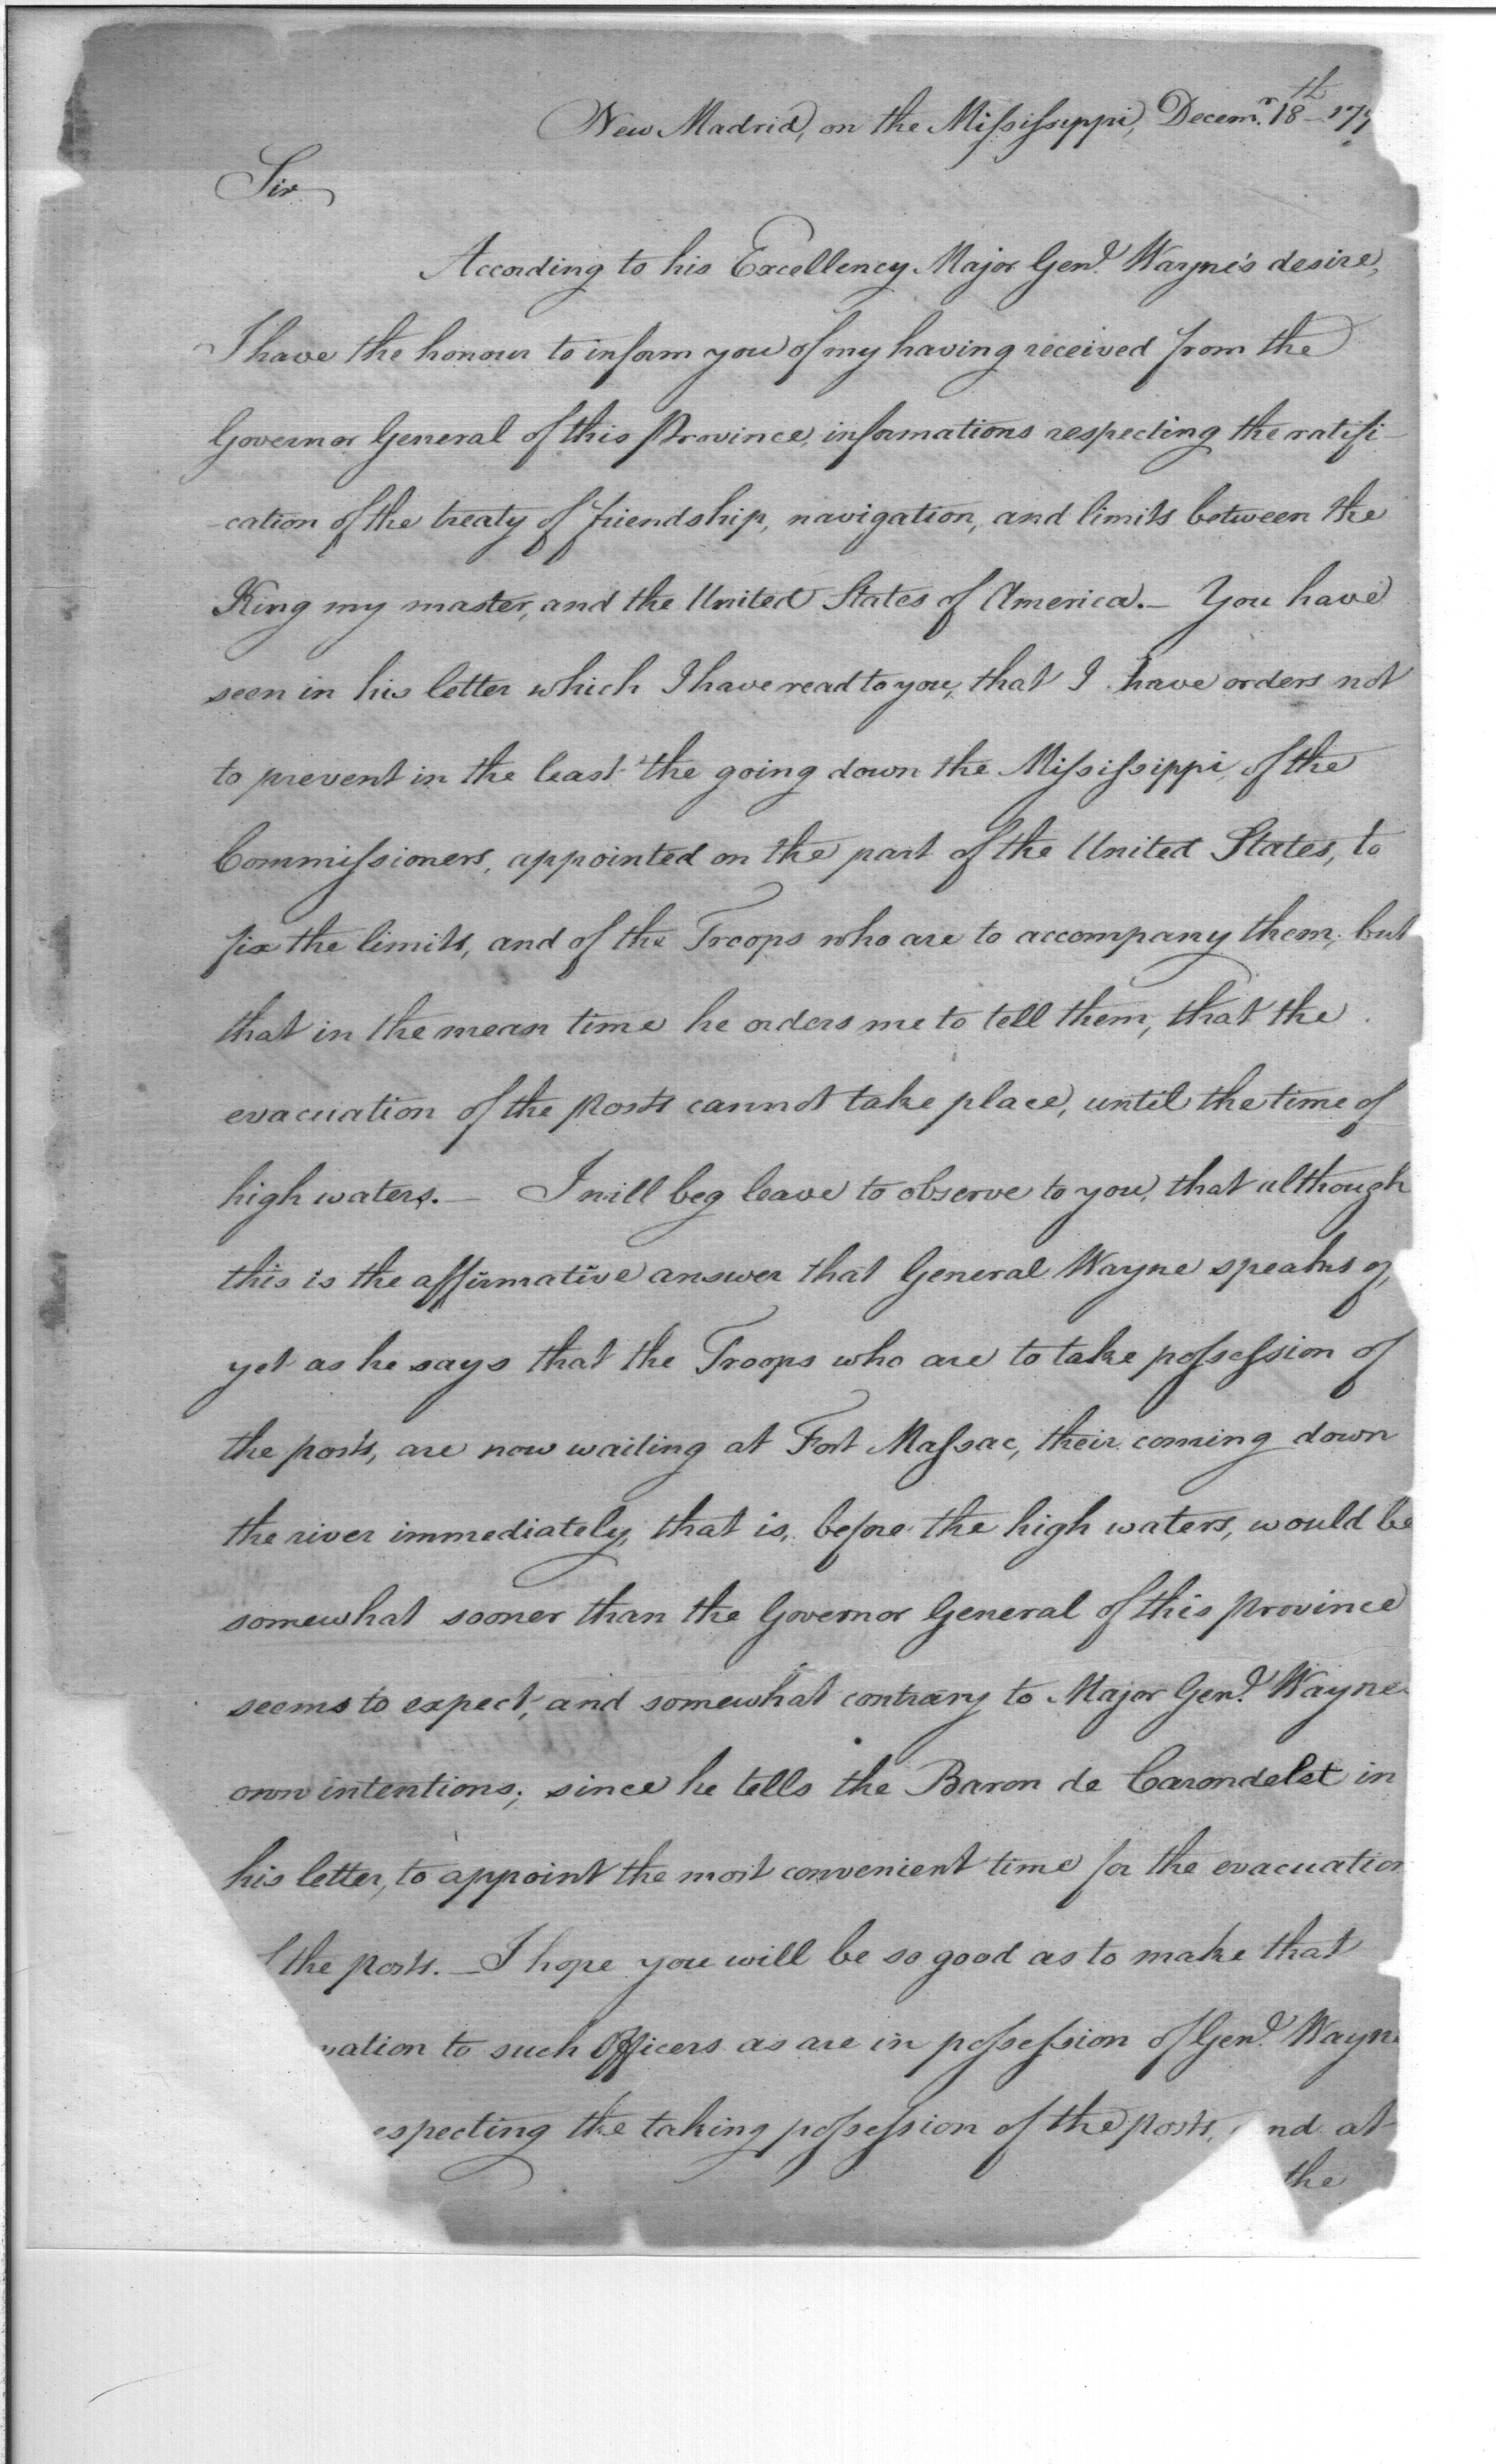 New Madrid, on the Mississippi, Decemr. 18th 179
Sir
According to his Excellency Major Genl. Wayne's desire,
I have the honour to inform you of my having received from the
Governor General of this Province, informations respecting the ratifi-
-cation of the treaty of friendship, navigation, and limits between the
King my master, and the United States of America.— You have
seen in his letter which I have read to you, that I have orders not
to prevent in the least the going down the Mississippi, of the
Commissioners, appointed on the part of the United States, to
fix the limits, and of the Troops who are to accompany them; but
that in the mean time he orders me to tell them, that the
evacuation of the Posts cannot take place, until the time of
high waters.— I will beg leave to observe to you, that although
this is the affirmative answer that General Wayne speaks of,
yet as he says that the Troops who are to take possession of
the posts, are now waiting at Fort Massac, their coming down
the river immediately, that is, before the high waters, would be
somewhat sooner than the Governor General of this Province
seems to expect, and somewhat contrary to Major Genl. Wayne
own intentions; since he tells the Baron de Carondelet in
his letter, to appoint the most convenient time for the evacuation
the Posts.— I hope you will be so good as to make that
vation to such Officers as are in possession of Genl. Wayne
especting the taking possession of the Posts, nd at
the